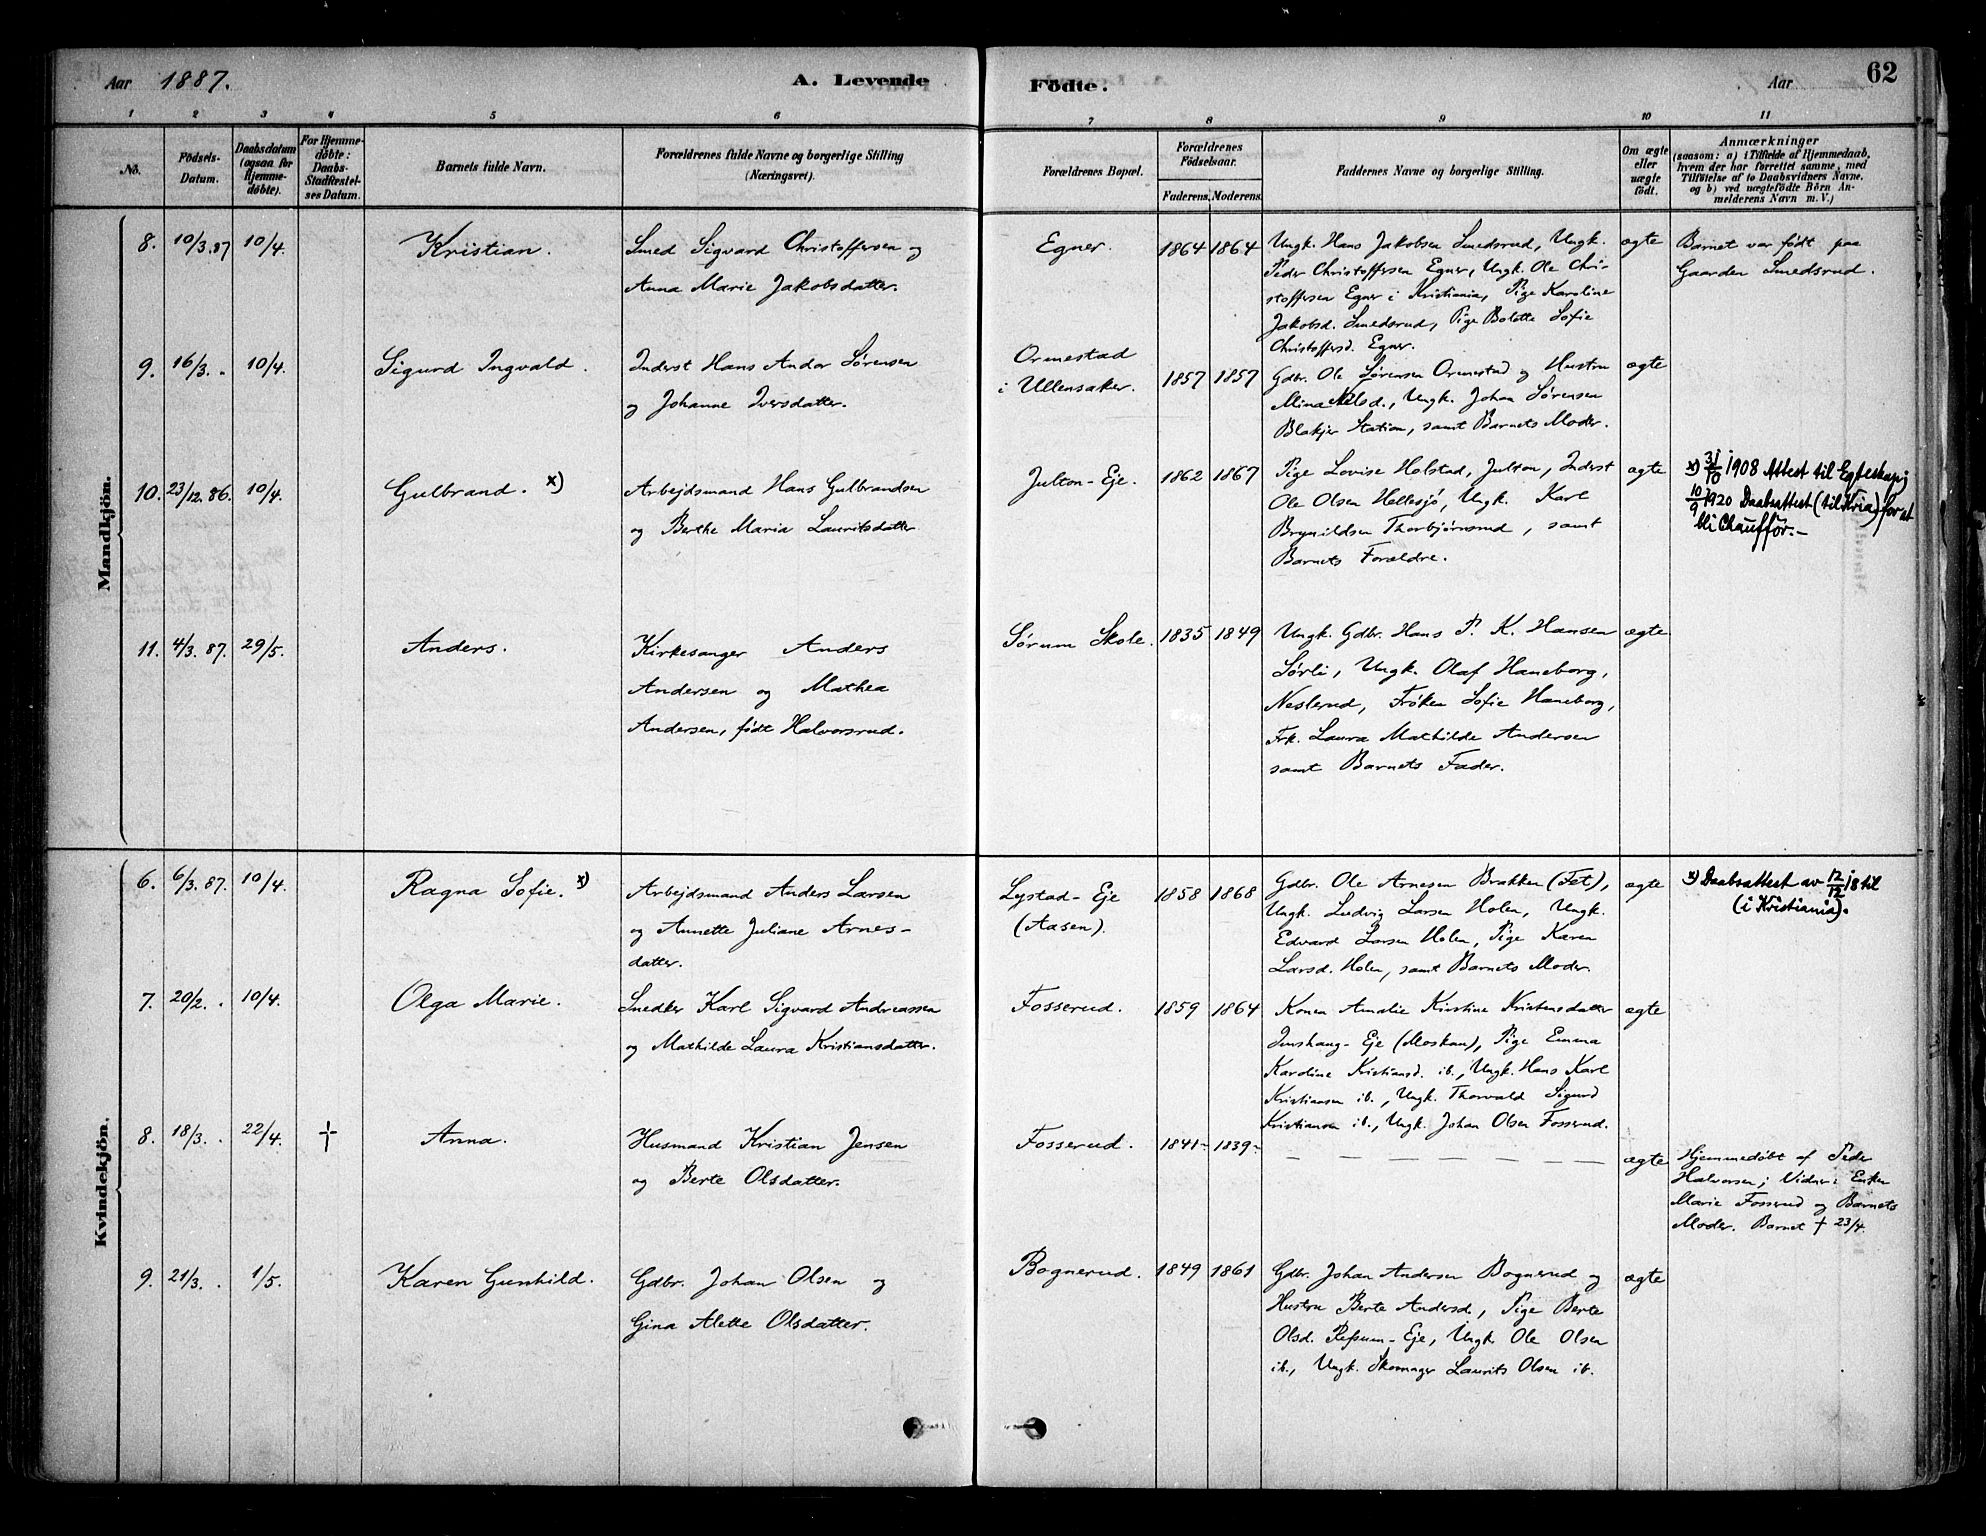 Aar 1887. A. Levende Födte. Aar 62
1 2 3 4 5 6 7 8 9 10 11
No.
Födsels-Datum.
Daabsdatum (ogsaa for Hjemmedöbte).
For Hjemmedöbte: Daabs-Stadfæstelses Datum.
Barnets fulde Navn.
Forældrenes fulde Navne og borgerlige Stilling (Næringsvei).
Forældrenes Bopæl.
Forældrenes Födselsaar.
Faderens. Moderens.
Faddernes Navne og borgerlige Stilling.
Om ægte eller uægte födt.
Anmærkninger
(saasom: a) i Tilfælde af Hjemmedaab, hvem der har forrettet samme, med Tilföielse af to Daabsvidners Navne, og b) ved uægtefödte Börn Anmelderens Navn m. V.)
Mandkjön.
8. 10/3.87 10/4. Kristian.
Smed Sigvard Christoffersen og
Anna Marie Jakobsdatter.
Egner. 1864 1864
Ungk. Hans Jakobsen Smedsrud, Ungk.
Peder Christoffersen Egner, Ungk. Ole Chri-
stoffersen Egner i Kristiania, Pige Karoline
Jakobsd. Smedsrud, Pige Bolette Sofie
Christoffersd. Egner.
ægte
Barnet var født paa
Gaarden Smedsrud.
9. 16/3. " 10/4. Sigurd Ingvald.
Inderst Hans Andor Sørensen
og Johanne Iversdatter.
Ormestad
i Ullensaker. 1857 1857
Gdbr. Ole Sørensen Ormestad og Hustru
Mina Nilsd., Ungk. Johan Sørensen
Blakjer Station, samt Barnets Moder.
ægte
10. 23/12.86. 10/4. Gulbrand. x)
Arbejdsmand Hans Gulbrandsen
og Berthe Maria Lauritsdatter
Julton-Eje. 1862 1867
Pige Lovise Holstad, Julton, Inderst
Ole Olsen Hellesjø, Ungk. Karl
Brynildsen Thorbjørnsrud, samt
Barnets Forældre.
ægte
x) 31/10 1908 Attest til Egteskap;
10/9 1920 Daabsattest (til Kria) for at
bli Chauffør.-
11. 4/3.87. 29/5. Anders.
Kirkesanger Anders
Andersen og Mathea
Andersen, født Halvorsrud.
Sørum Skole. 1835 1849
Ungk. Gdbr. Hans P. K. Hansen
Sørli, Ungk. Olaf Haneborg,
Neslerud, Frøken Sofie Haneborg,
Frk. Laura Mathilde Andersen
samt Barnets Fader.
ægte
Kvindekjön.
6. 6/3.87. 10/4. Ragna Sofie. x)
Arbejdsmand Anders Larsen
og Annette Juliane Arnes-
datter.
Lystad-Eje
(Aasen). 1858 1868
Gdbr. Ole Arnesen Brakken (Fet),
Ungk. Ludvig Larsen Holen, Ungk.
Edvard Larsen Holen, Pige Karen
Larsd. Holen, samt Barnets Moder.
ægte
x) Daabsattest av 12/12 18 til
(i Kristiania).
7. 20/2. " 10/4. Olga Marie.
Snedker Karl Sigvard Andreassen
og Mathilde Laura Kristiansdatter.
Fosserud. 1859 1864
Konen Amalie Kirstine Kristensdatter
Imshaug-Eje (Moskau), Pige Emma
Karoline Kristiansd. ib., Ungk. Hans Karl
Kristiansen ib., Ungk. Thorvald Sigurd
Kristiansen ib., Ungk. Johan Olsen Fosserud.
ægte
8. 18/3. " 22/4. † Anna.
Husmand Kristian Jensen
og Berte Olsdatter.
Fosserud. 1841- 1839-
— — — — — — —
ægte
Hjemmedøbt af Peder
Halvorsen; Vidner: Enken
Marie Fosserud og Barnets
Moder. Barnet † 23/4.
9. 21/3. " 1/5. Karen Gunhild.
Gdbr. Johan Olsen og
Gina Alette Olsdatter.
Bognerud. 1849 1861
Gdbr. Johan Andersen Bognerud og
Hustru Berte Andersd., Pige Berte
Olsd. Refsum-Eje, Ungk. Ole Olsen
ib., Ungk. Skomager Laurits Olsen ib.
ægte